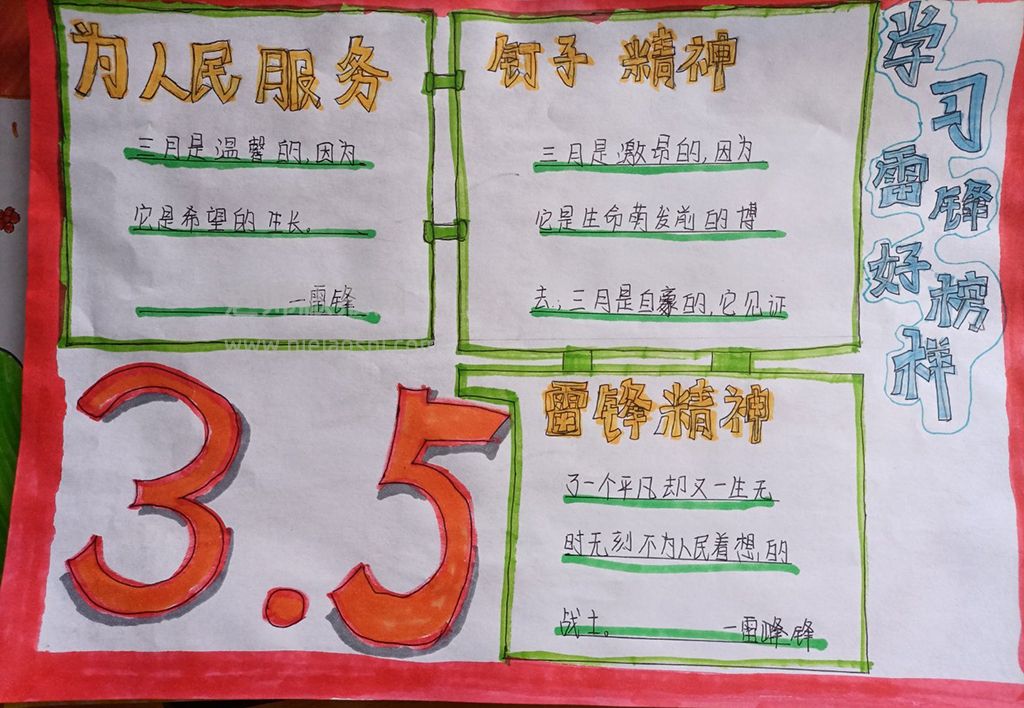 为人民服务
三月是温馨的,因为
它是希望的生长。
—雷锋
钉子精神
三月是激昂的,因为
它是生命萌发前的博
去;三月是自豪的,它见证
学习雷锋好榜样
3.5
雷锋精神
了一个平凡却又一生无
时无刻不为人民着想的
战士。 —雷峰锋